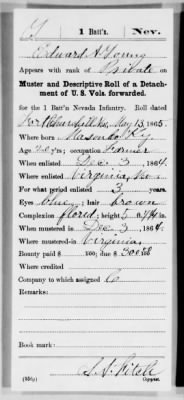 Y 1 Batt'n. Nev.
Edward A Young
Appears with rank of Private on
Muster and Descriptive Roll of a Detach-
ment of U. S. Vols. forwarded.
for the 1 Batt'n Nevada Infantry. Roll dated
Fort Churchill Nev, May 13, 1865.
Where born Ky
Age 20 y'rs; occupation Farmer
When enlisted Dec 3, 1864.
Where enlisted Virginia, Nev
For what period enlisted 3 years.
Eyes blue; hair brown
Complexion florid; height 5 ft. in.
When mustered in Dec 3, 1864.
Where mustered in Virginia
Bounty paid $ 100; due $ 300 100
Where credited
Company to which assigned C
Remarks:
Book mark:
Copyist.